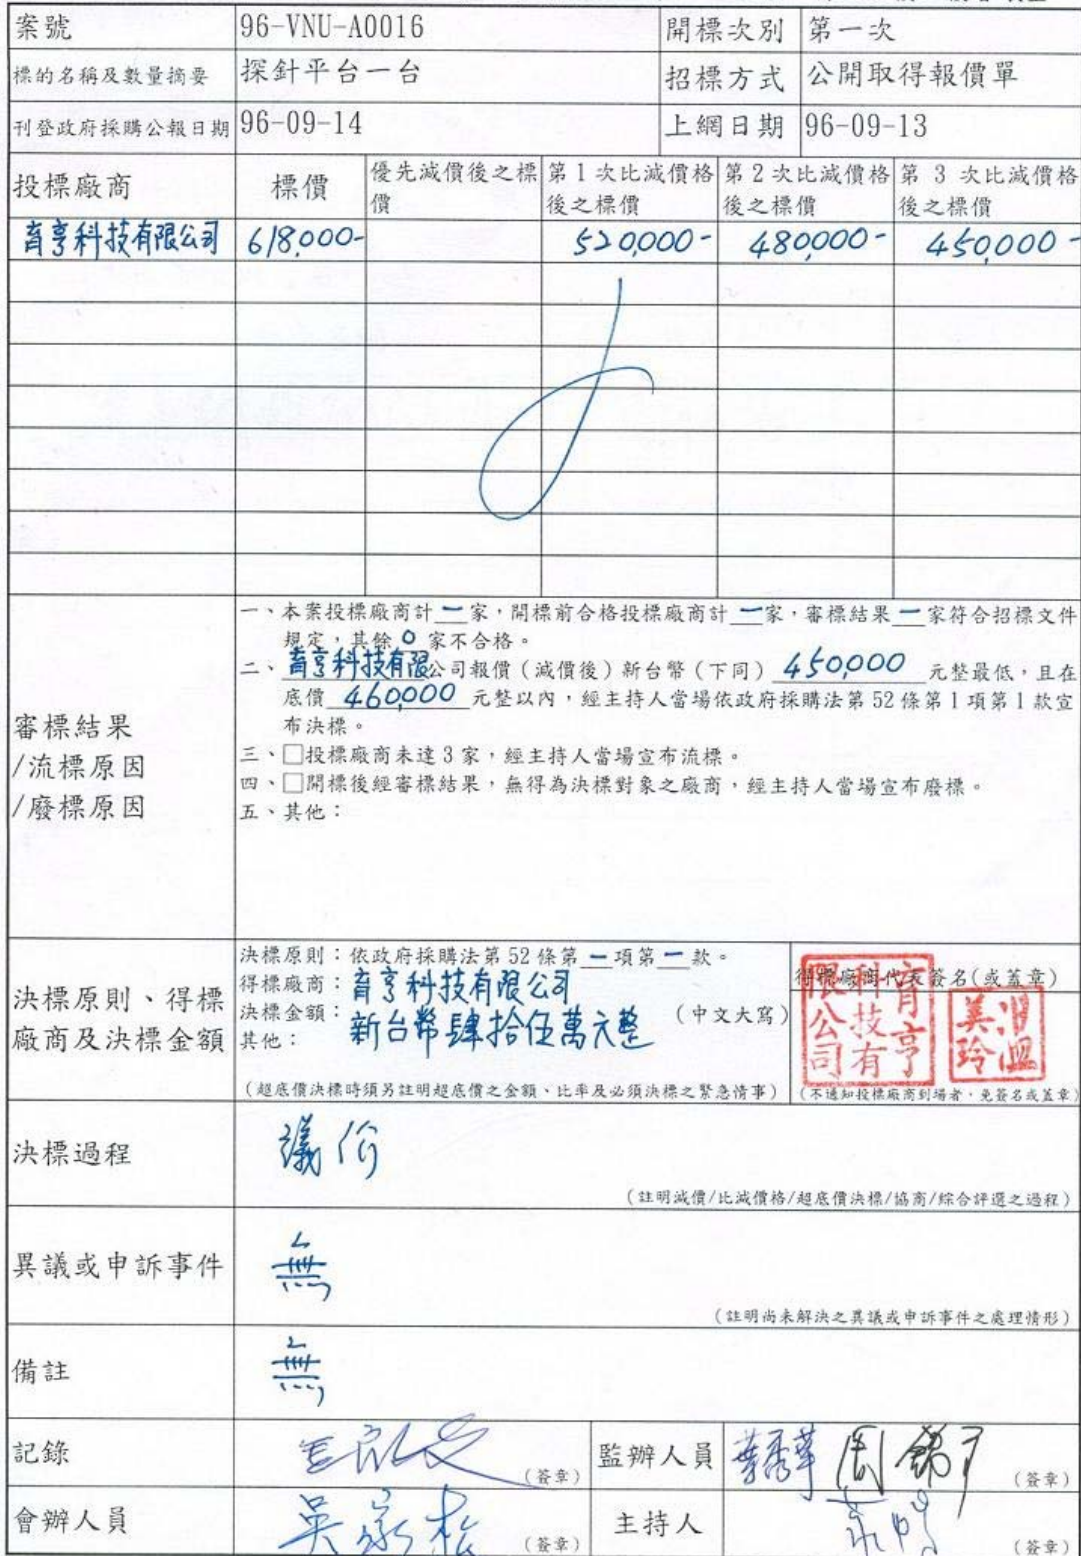 案號 96-VNU-A0016 開標次別 第一次
標的名稱及數量摘要 探針平台一台 招標方式 公開取得報價單
刊登政府採購公報日期 96-09-14 上網日期 96-09-13
投標廠商 標價 優先減價後之標價 第1次比減價格後之標價 第2次比減價格後之標價 第 3 次比減價格後之標價
育亨科技有限公司 618,000- 520,000- 480,000- 450,000-
審標結果
/流標原因
/廢標原因
一、本案投標廠商計一家,開標前合格投標廠商計一家,審標結果一家符合招標文件
規定,其餘0家不合格。
二、育亨科技有限公司報價(減價後)新台幣(下同)450,000元整最低,且在
底價460,000元整以內,經主持人當場依政府採購法第52條第1項第1款宣
布決標。
三、□投標廠商未達3家,經主持人當場宣布流標。
四、□開標後經審標結果,無得為決標對象之廠商,經主持人當場宣布廢標。
五、其他:
決標原則、得標
廠商及決標金額
決標原則:依政府採購法第52條第一項第一款。
得標廠商:育亨科技有限公司
決標金額:新台幣肆拾伍萬元整(中文大寫)
其他:
(超底價決標時須另註明超底價之金額、比率及必須決標之緊急情事)
得標廠商代表簽名(或蓋章)
育亨科技有限公司
美玲
(不通知投標廠商到場者,免簽名或蓋章)
決標過程 議价
(註明減價/比減價格/超底價決標/協商/綜合評選之過程)
異議或申訴事件 無
(註明尚未解決之異議或申訴事件之處理情形)
備註 無
記錄 (簽章) 監辦人員 葉秀華 (簽章)
會辦人員 吳家松 (簽章) 主持人 (簽章)